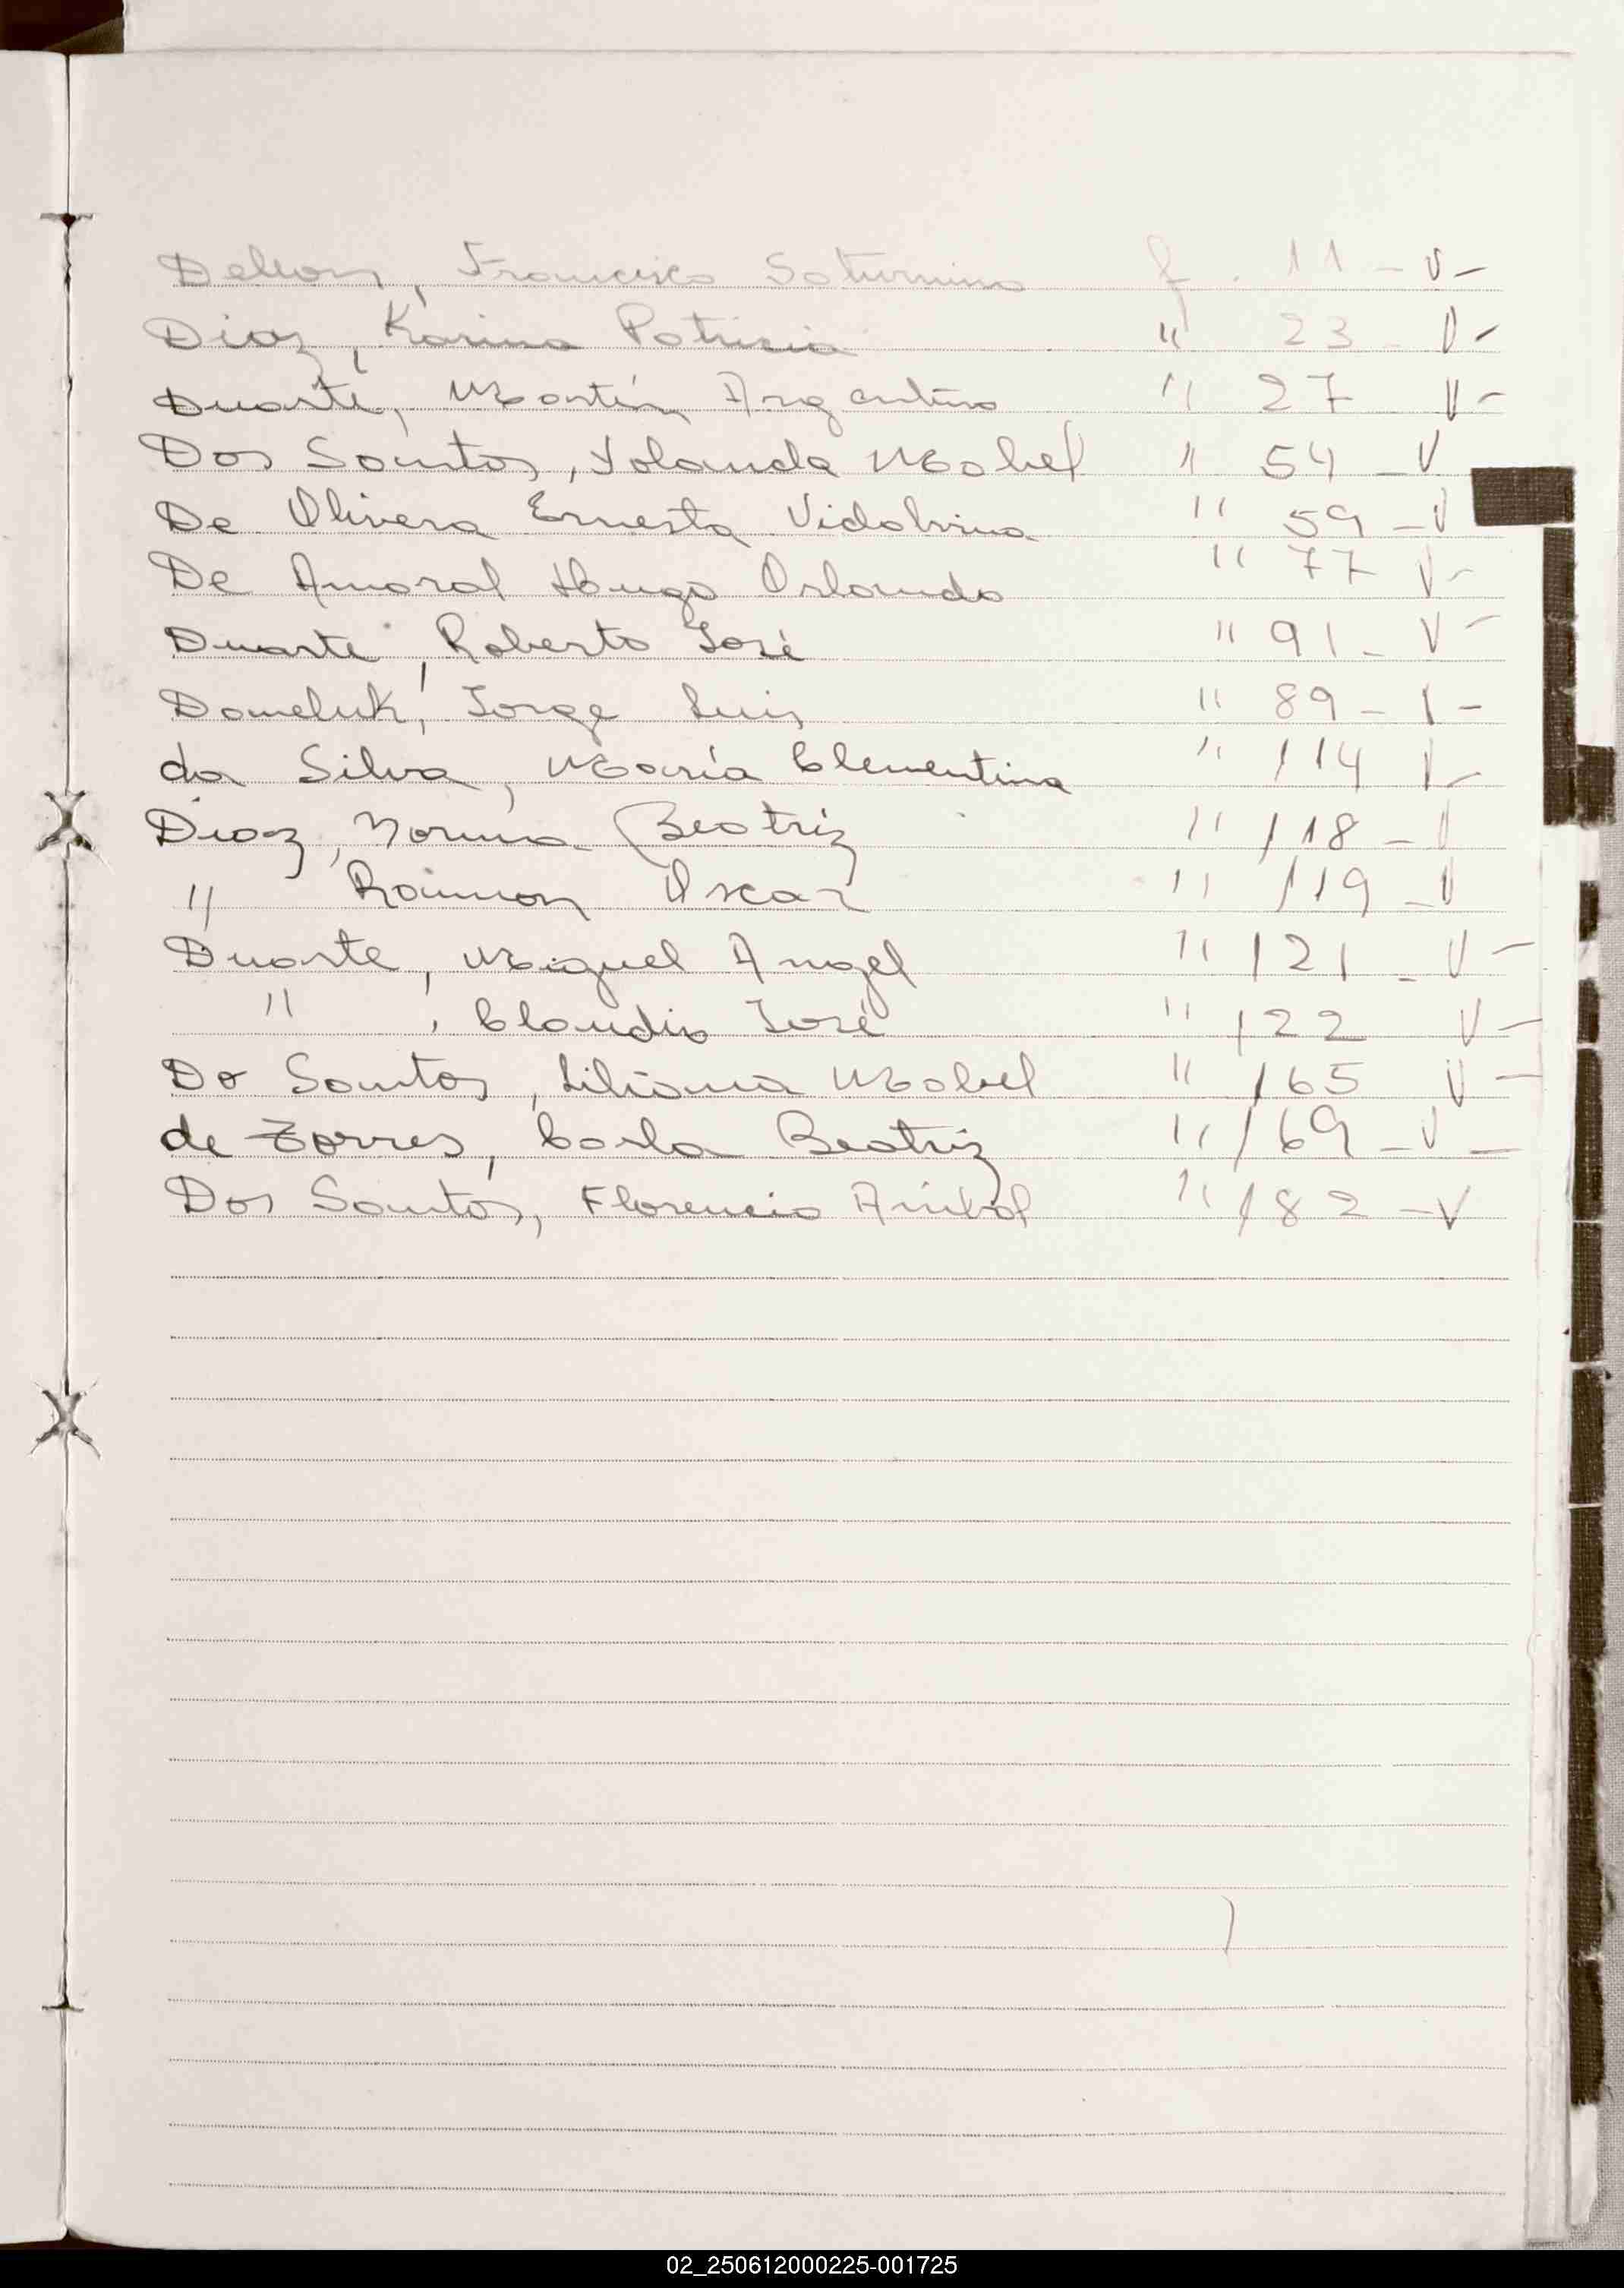 Delleon, Francisco Saturnino f. 11 - V -
Diaz, Karina Patricia " 23 - V -
Duarte, Martín Argentino " 27 V -
Dos Santos, Yolanda Mabel " 54 - V
De Olivera Ernesta Vidalvina " 59 - V
De Amaral Hugo Orlando " 77 V -
Duarte, Roberto José " 91 - V -
Domeluk, Jorge Luis " 89 - V -
da Silva, María Clementina " 114 V -
Diaz, Norma Beatriz " 118 - V
" Ramon Oscar " 119 - V
Duarte, Miguel Angel " 121 - V -
" , Claudio José " 122 V -
Do Santos, Liliana Mabel " 165 V -
de Torres, Carla Beatriz " 169 - V -
Dos Santos, Florencio Aníbal " 182 - V
02_250612000225-001725